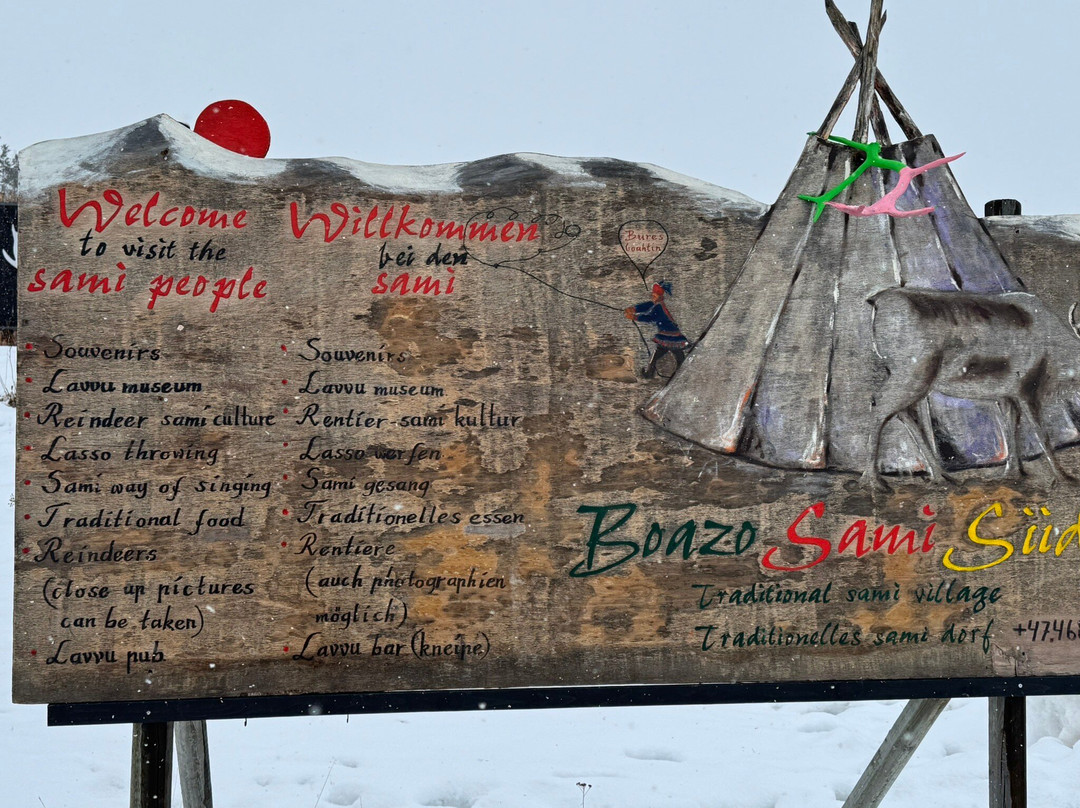 Welcome
to visit the
sami people
Souvenirs
Lavvu museum
Reindeer sami culture
Lasso throwing
Sami way of singing
Traditional food
Reindeers
(close up pictures
can be taken)
Lavvu pub
Willkommen
bei den
sami
Souvenirs
Lavvu museum
Rentier-sami kultur
Lasso werfen
Sami gesang
Traditionelles essen
Rentiere
(auch photographien
möglich)
Lavvu bar (kneipe)
Bures
Boazo Sami Siid
Traditional sami village
Traditionelles sami dorf
+47.46